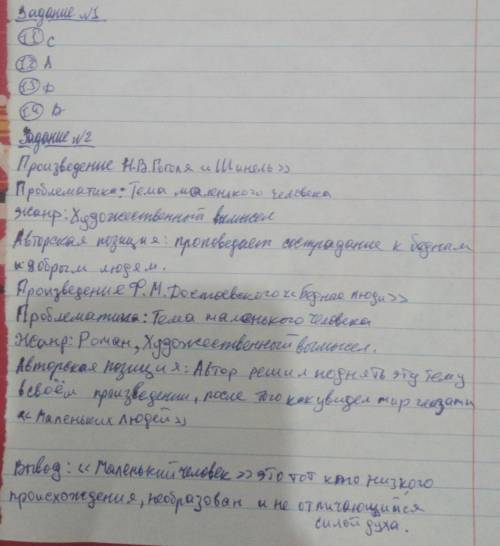 Задание №1
11 С
12 А
13 D
14 D
Задание №2
Произведение Н.В.Гоголя «Шинель»
Проблематика: Тема маленького человека
Жанр: Художественный вымысел
Авторская позиция: проповедает сострадание к бедным
и добрым людям.
Произведение Ф.М.Достоевского «Бедные люди»
Проблематика: Тема маленького человека
Жанр: Роман, Художественный вымысел.
Авторская позиция: Автор решил поднять эту тему
в своём произведении, после того как увидел мир глазами
«Маленьких людей»
Вывод: «Маленький человек» это тот кто низкого
происхождения, необразован и не отличающийся
силой духа.